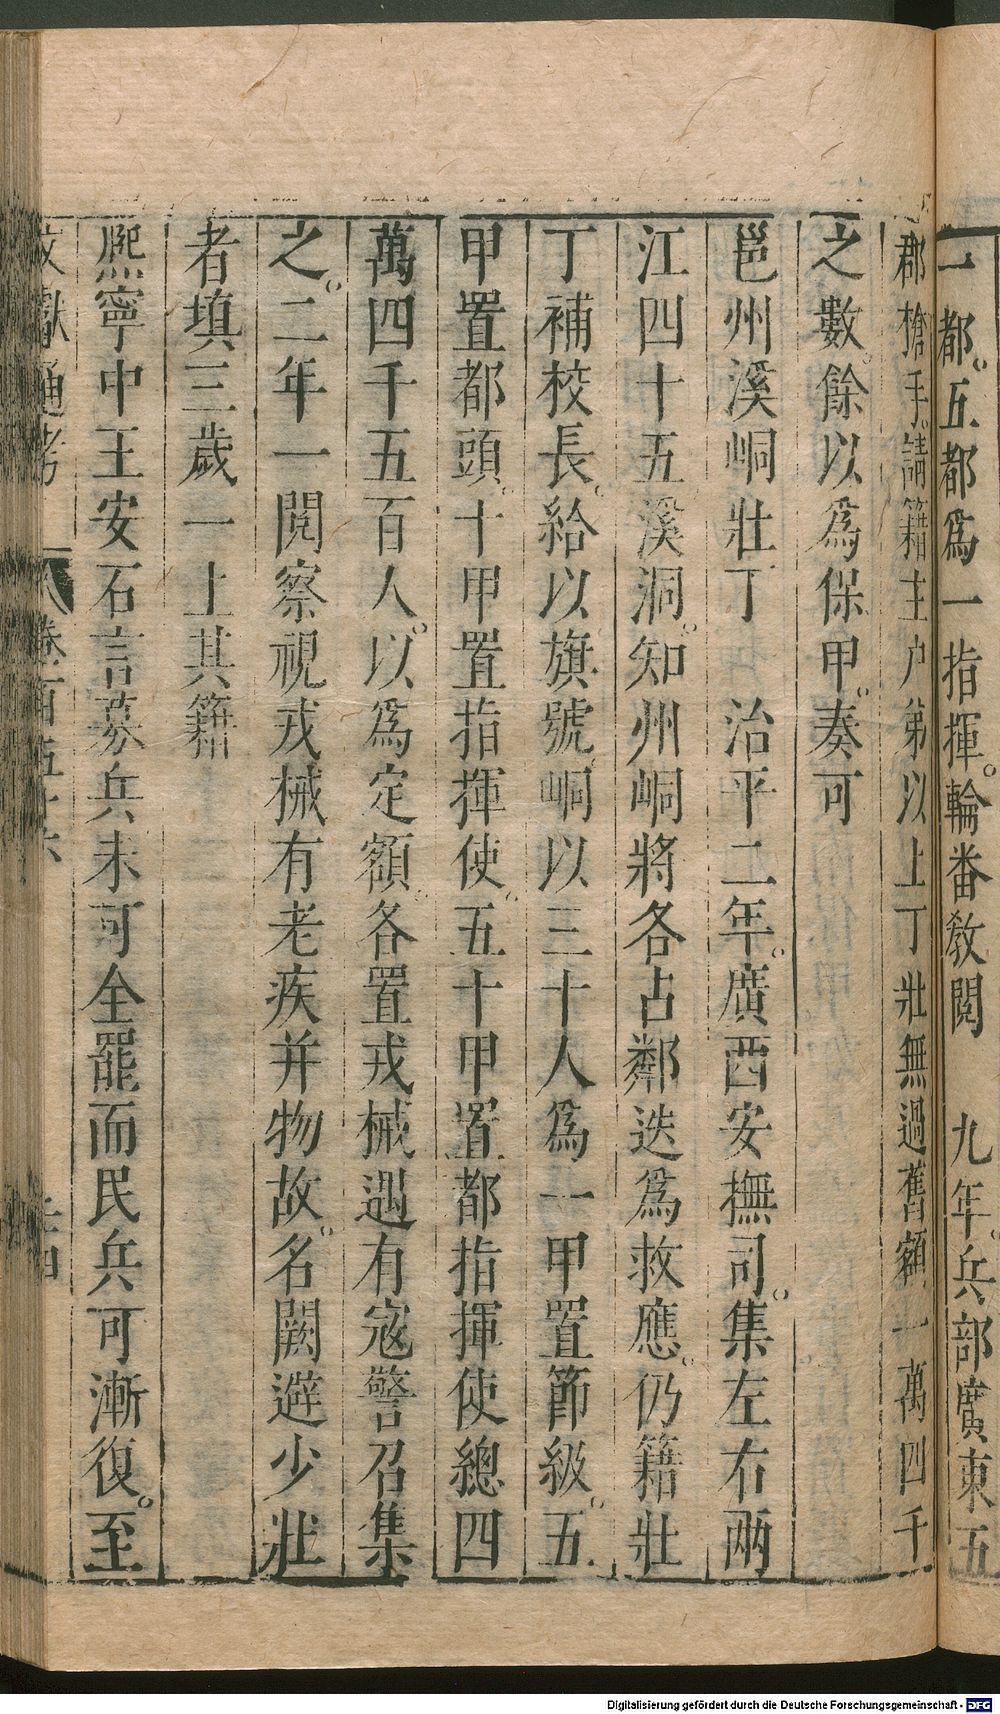 一都。五都爲一指揮。輪番敎閱　九年。兵部廣東五
郡槍手。請籍主户第以上丁壯無過舊額一萬四千
之數。餘以爲保甲。奏可
邕州溪峒壯丁　治平二年。廣西安撫司。集左右兩
江四十五溪洞。知州峒將各占鄰迭爲救應。仍籍壯
丁補校長。給以旗號。峒以三十人爲一甲置節級。五
甲置都頭。十甲置指揮使。五十甲置都指揮使總四
萬四千五百人。以爲定額。各置戎械遇有寇警召集
之。二年一閱察視戎械有老疾并物故。名闕選少壯
者填三歲一上其籍
熙寧中王安石言募兵未可全罷而民兵可漸復。至
文獻通考 卷一百五十六
Digitalisierung gefördert durch die Deutsche Forschungsgemeinschaft - DFG